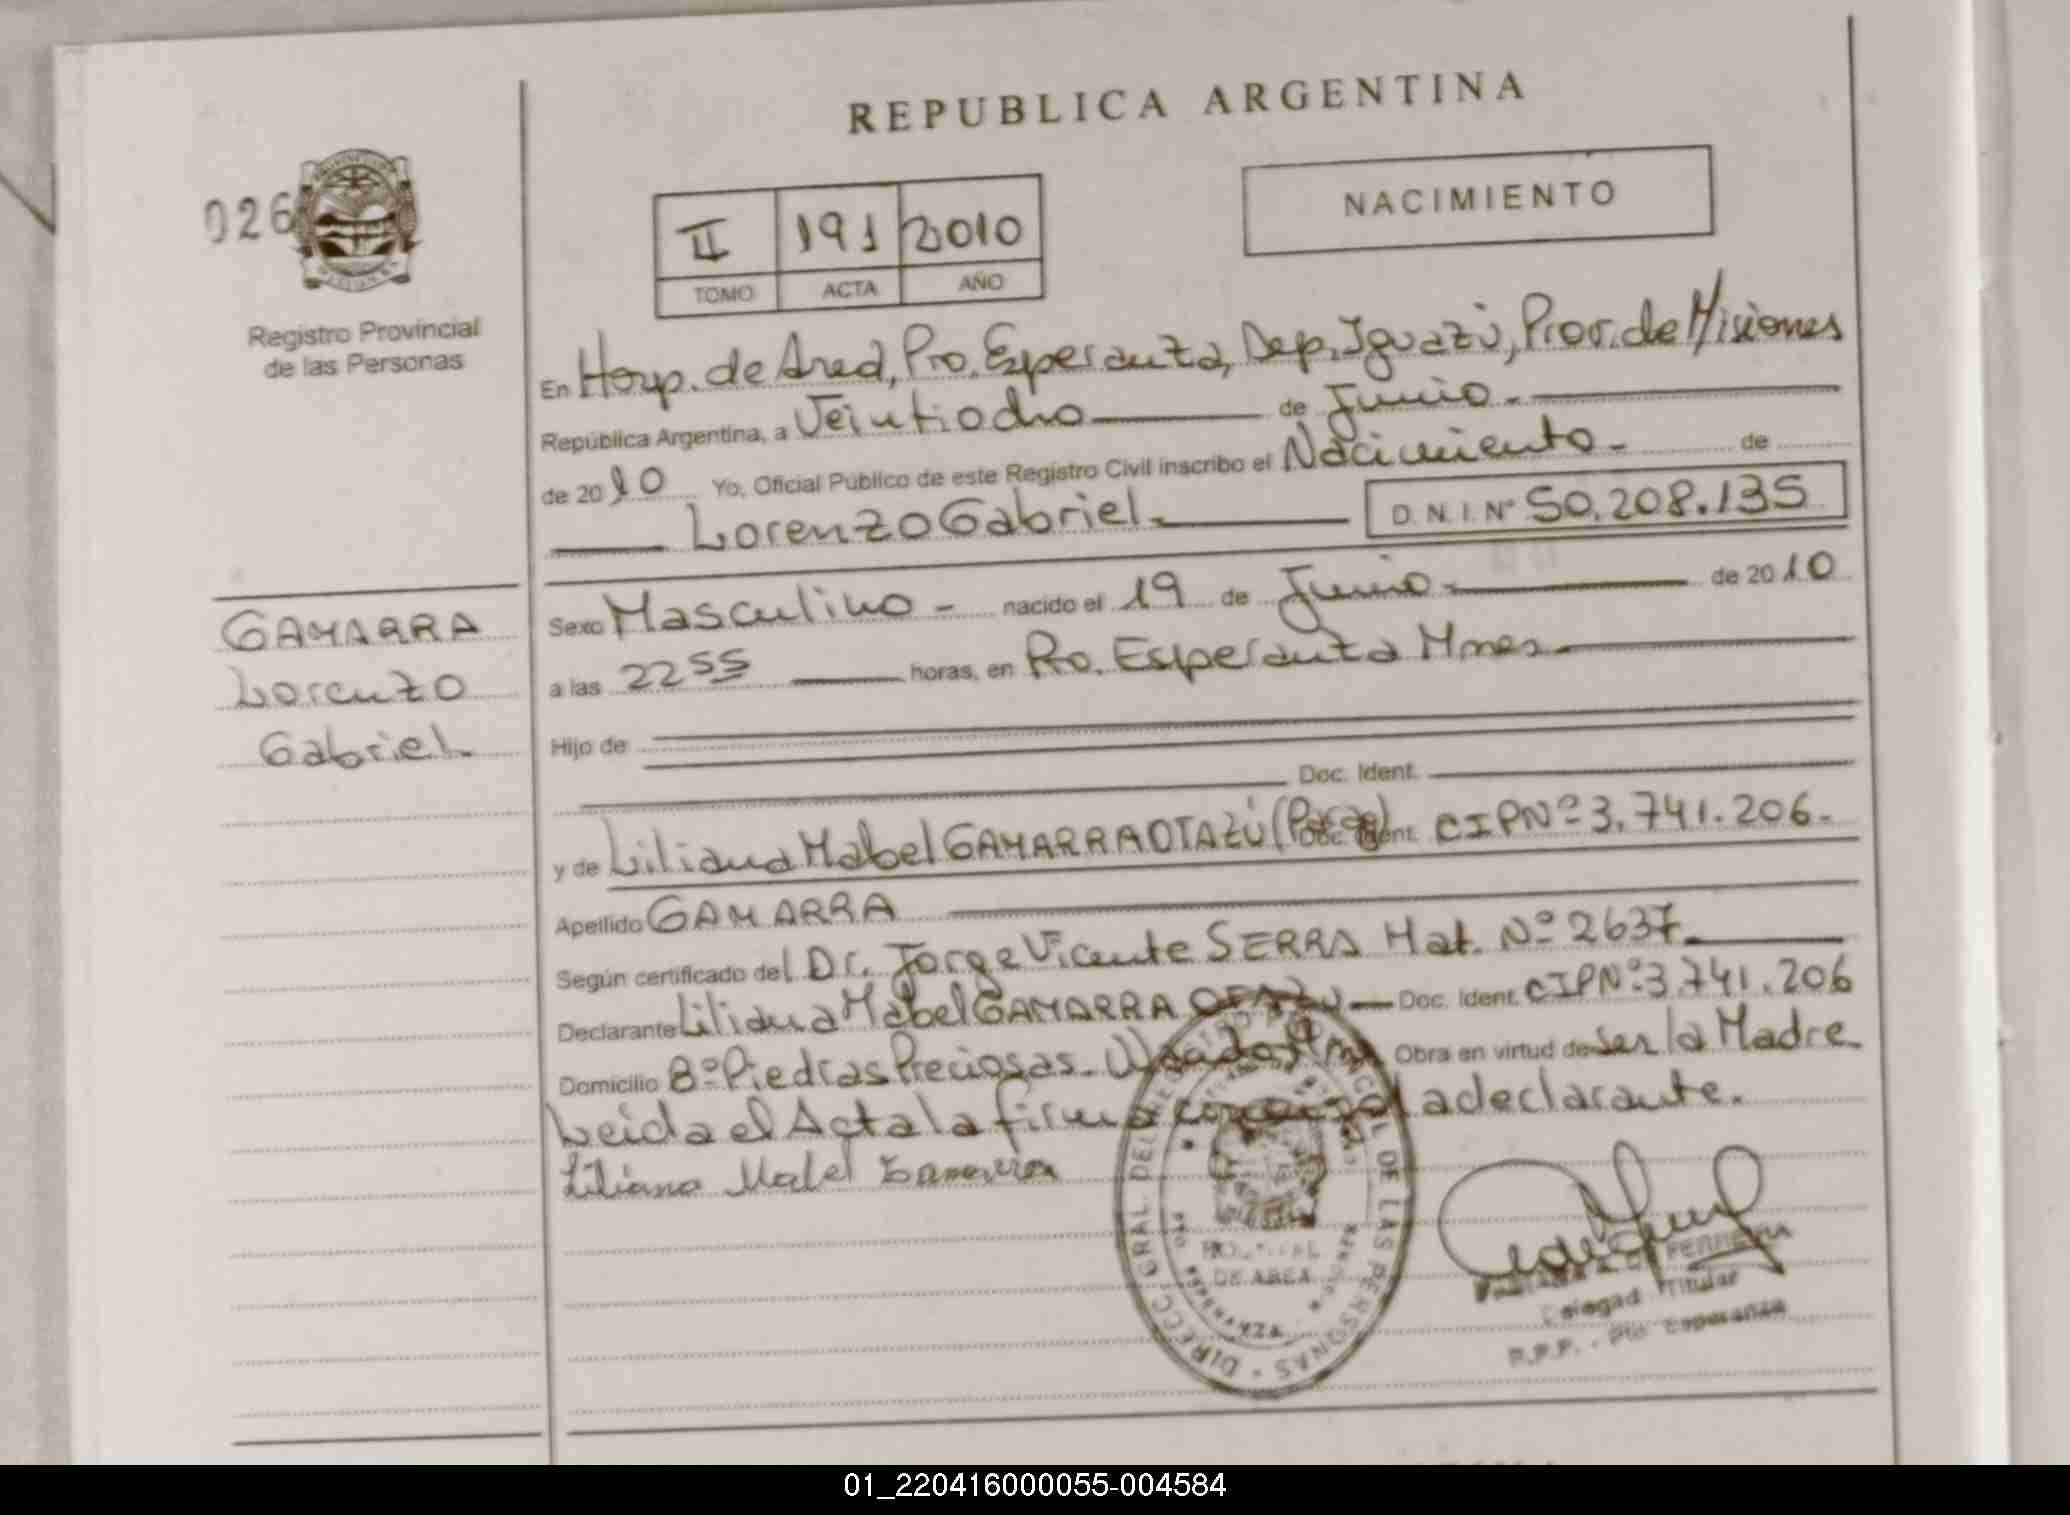 REPUBLICA ARGENTINA
026
Registro Provincial
de las Personas
II 191 2010
TOMO ACTA AÑO
NACIMIENTO
En Hosp. de Area, Pto. Esperanza, Dep. Iguazú, Prov. de Misiones
República Argentina, a Veintiocho de Junio.
de 2010 Yo, Oficial Público de este Registro Civil inscribo el Nacimiento. de
Lorenzo Gabriel. D.N.I. Nº 50.208.135
GAMARRA
Lorenzo
Gabriel.
Sexo Masculino - nacido el 19 de Junio. de 2010
a las 22 55 horas, en Pto. Esperanza Mnes.
Hijo de
Doc. Ident.
y de Liliana Mabel GAMARRA OTAZÚ Doc. Ident. CIPNº 3.741.206.
Apellido GAMARRA
Según certificado del Dr. Jorge Vicente SERRA Mat. Nº 2637.
Declarante Liliana Mabel GAMARRA OTAZU Doc. Ident. CIPNº 3.741.206
Domicilio Bº Piedras Preciosas. Obra en virtud de ser la Madre
Leida el Acta la firma la declarante.
Liliana Mabel Gamarra
DIRECC. GRAL. DEL REGISTRO PROVINCIAL DE LAS PERSONAS
HOSPITAL
DE AREA
FERREIRA
Delegad Titular
R.P.P. - Pto. Esperanza
01_220416000055-004584